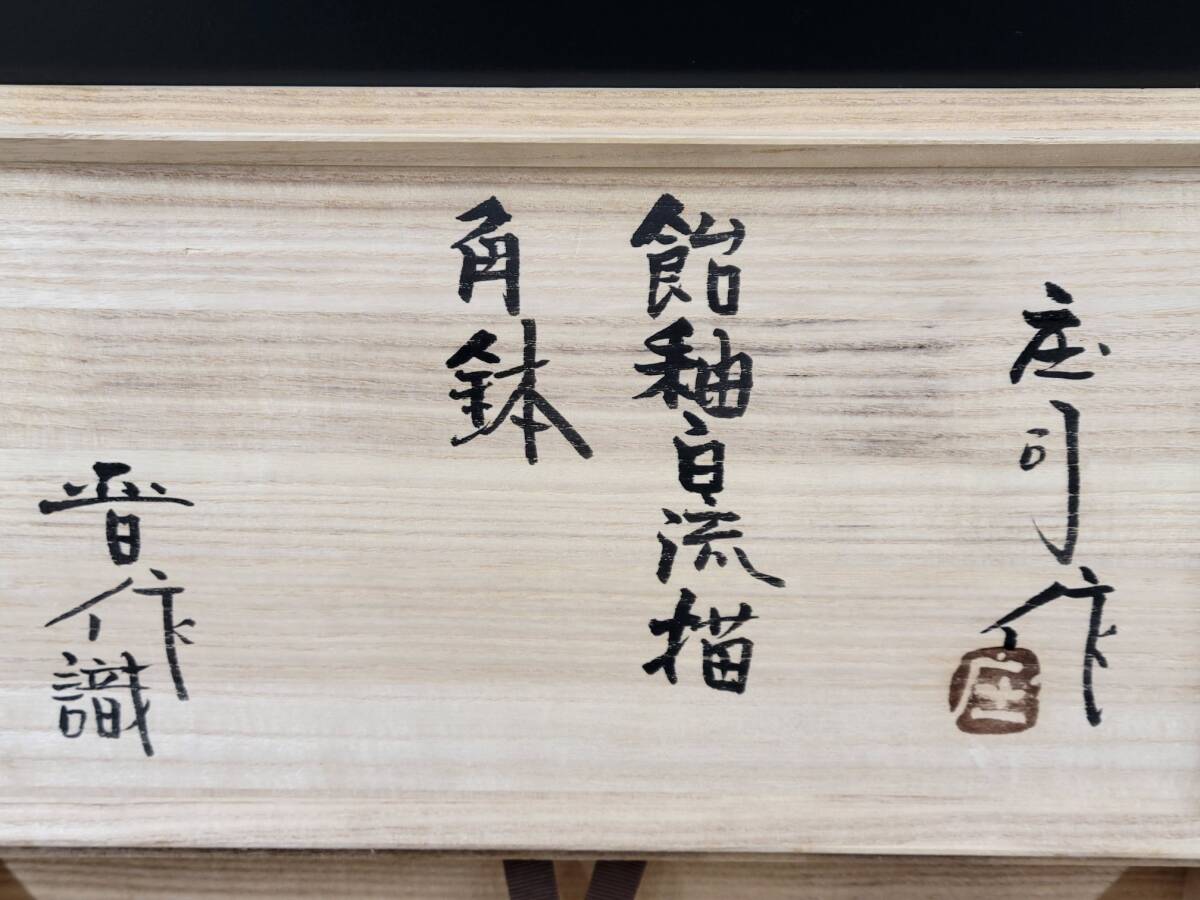 庄司作
庄
飴釉白流描
角鉢
晋作識